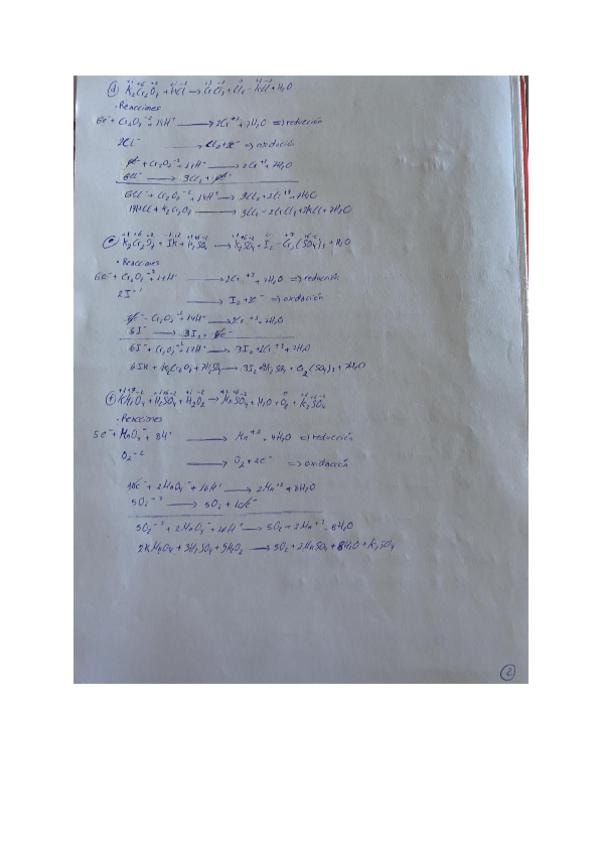 d) K₂Cr₂O₇ + HCl → CrCl₃ + Cl₂ + KCl + H₂O
• Reacciones
6e⁻ + Cr₂O₇⁻² + 14H⁺ → 2Cr⁺³ + 7H₂O ⇒ reducción
2Cl⁻ → Cl₂ + 2e⁻ ⇒ oxidación
6e⁻ + Cr₂O₇⁻² + 14H⁺ → 2Cr⁺³ + 7H₂O
6Cl⁻ → 3Cl₂ + 6e⁻
6Cl⁻ + Cr₂O₇⁻² + 14H⁺ → 3Cl₂ + 2Cr⁺³ + 7H₂O
14HCl + K₂Cr₂O₇ → 3Cl₂ + 2CrCl₃ + 2KCl + 7H₂O
e) K₂Cr₂O₇ + IK + H₂SO₄ → K₂SO₄ + I₂ + Cr₂(SO₄)₃ + H₂O
• Reacciones
6e⁻ + Cr₂O₇⁻² + 14H⁺ → 2Cr⁺³ + 7H₂O ⇒ reducción
2I⁻¹ → I₂ + 2e⁻ ⇒ oxidación
6e⁻ + Cr₂O₇⁻² + 14H⁺ → 2Cr⁺³ + 7H₂O
6I⁻ → 3I₂ + 6e⁻
6I⁻ + Cr₂O₇⁻² + 14H⁺ → 3I₂ + 2Cr⁺³ + 7H₂O
6IK + K₂Cr₂O₇ + 7H₂SO₄ → 3I₂ + 4K₂SO₄ + Cr₂(SO₄)₃ + 7H₂O
f) KMnO₄ + H₂SO₄ + H₂O₂ → MnSO₄ + H₂O + O₂ + K₂SO₄
• Reacciones
5e⁻ + MnO₄⁻ + 8H⁺ → Mn⁺² + 4H₂O ⇒ reducción
O₂⁻² → O₂ + 2e⁻ ⇒ oxidación
10e⁻ + 2MnO₄⁻ + 16H⁺ → 2Mn⁺² + 8H₂O
5O₂⁻² → 5O₂ + 10e⁻
5O₂⁻² + 2MnO₄⁻ + 16H⁺ → 5O₂ + 2Mn⁺² + 8H₂O
2KMnO₄ + 3H₂SO₄ + 5H₂O₂ → 5O₂ + 2MnSO₄ + 8H₂O + K₂SO₄
2